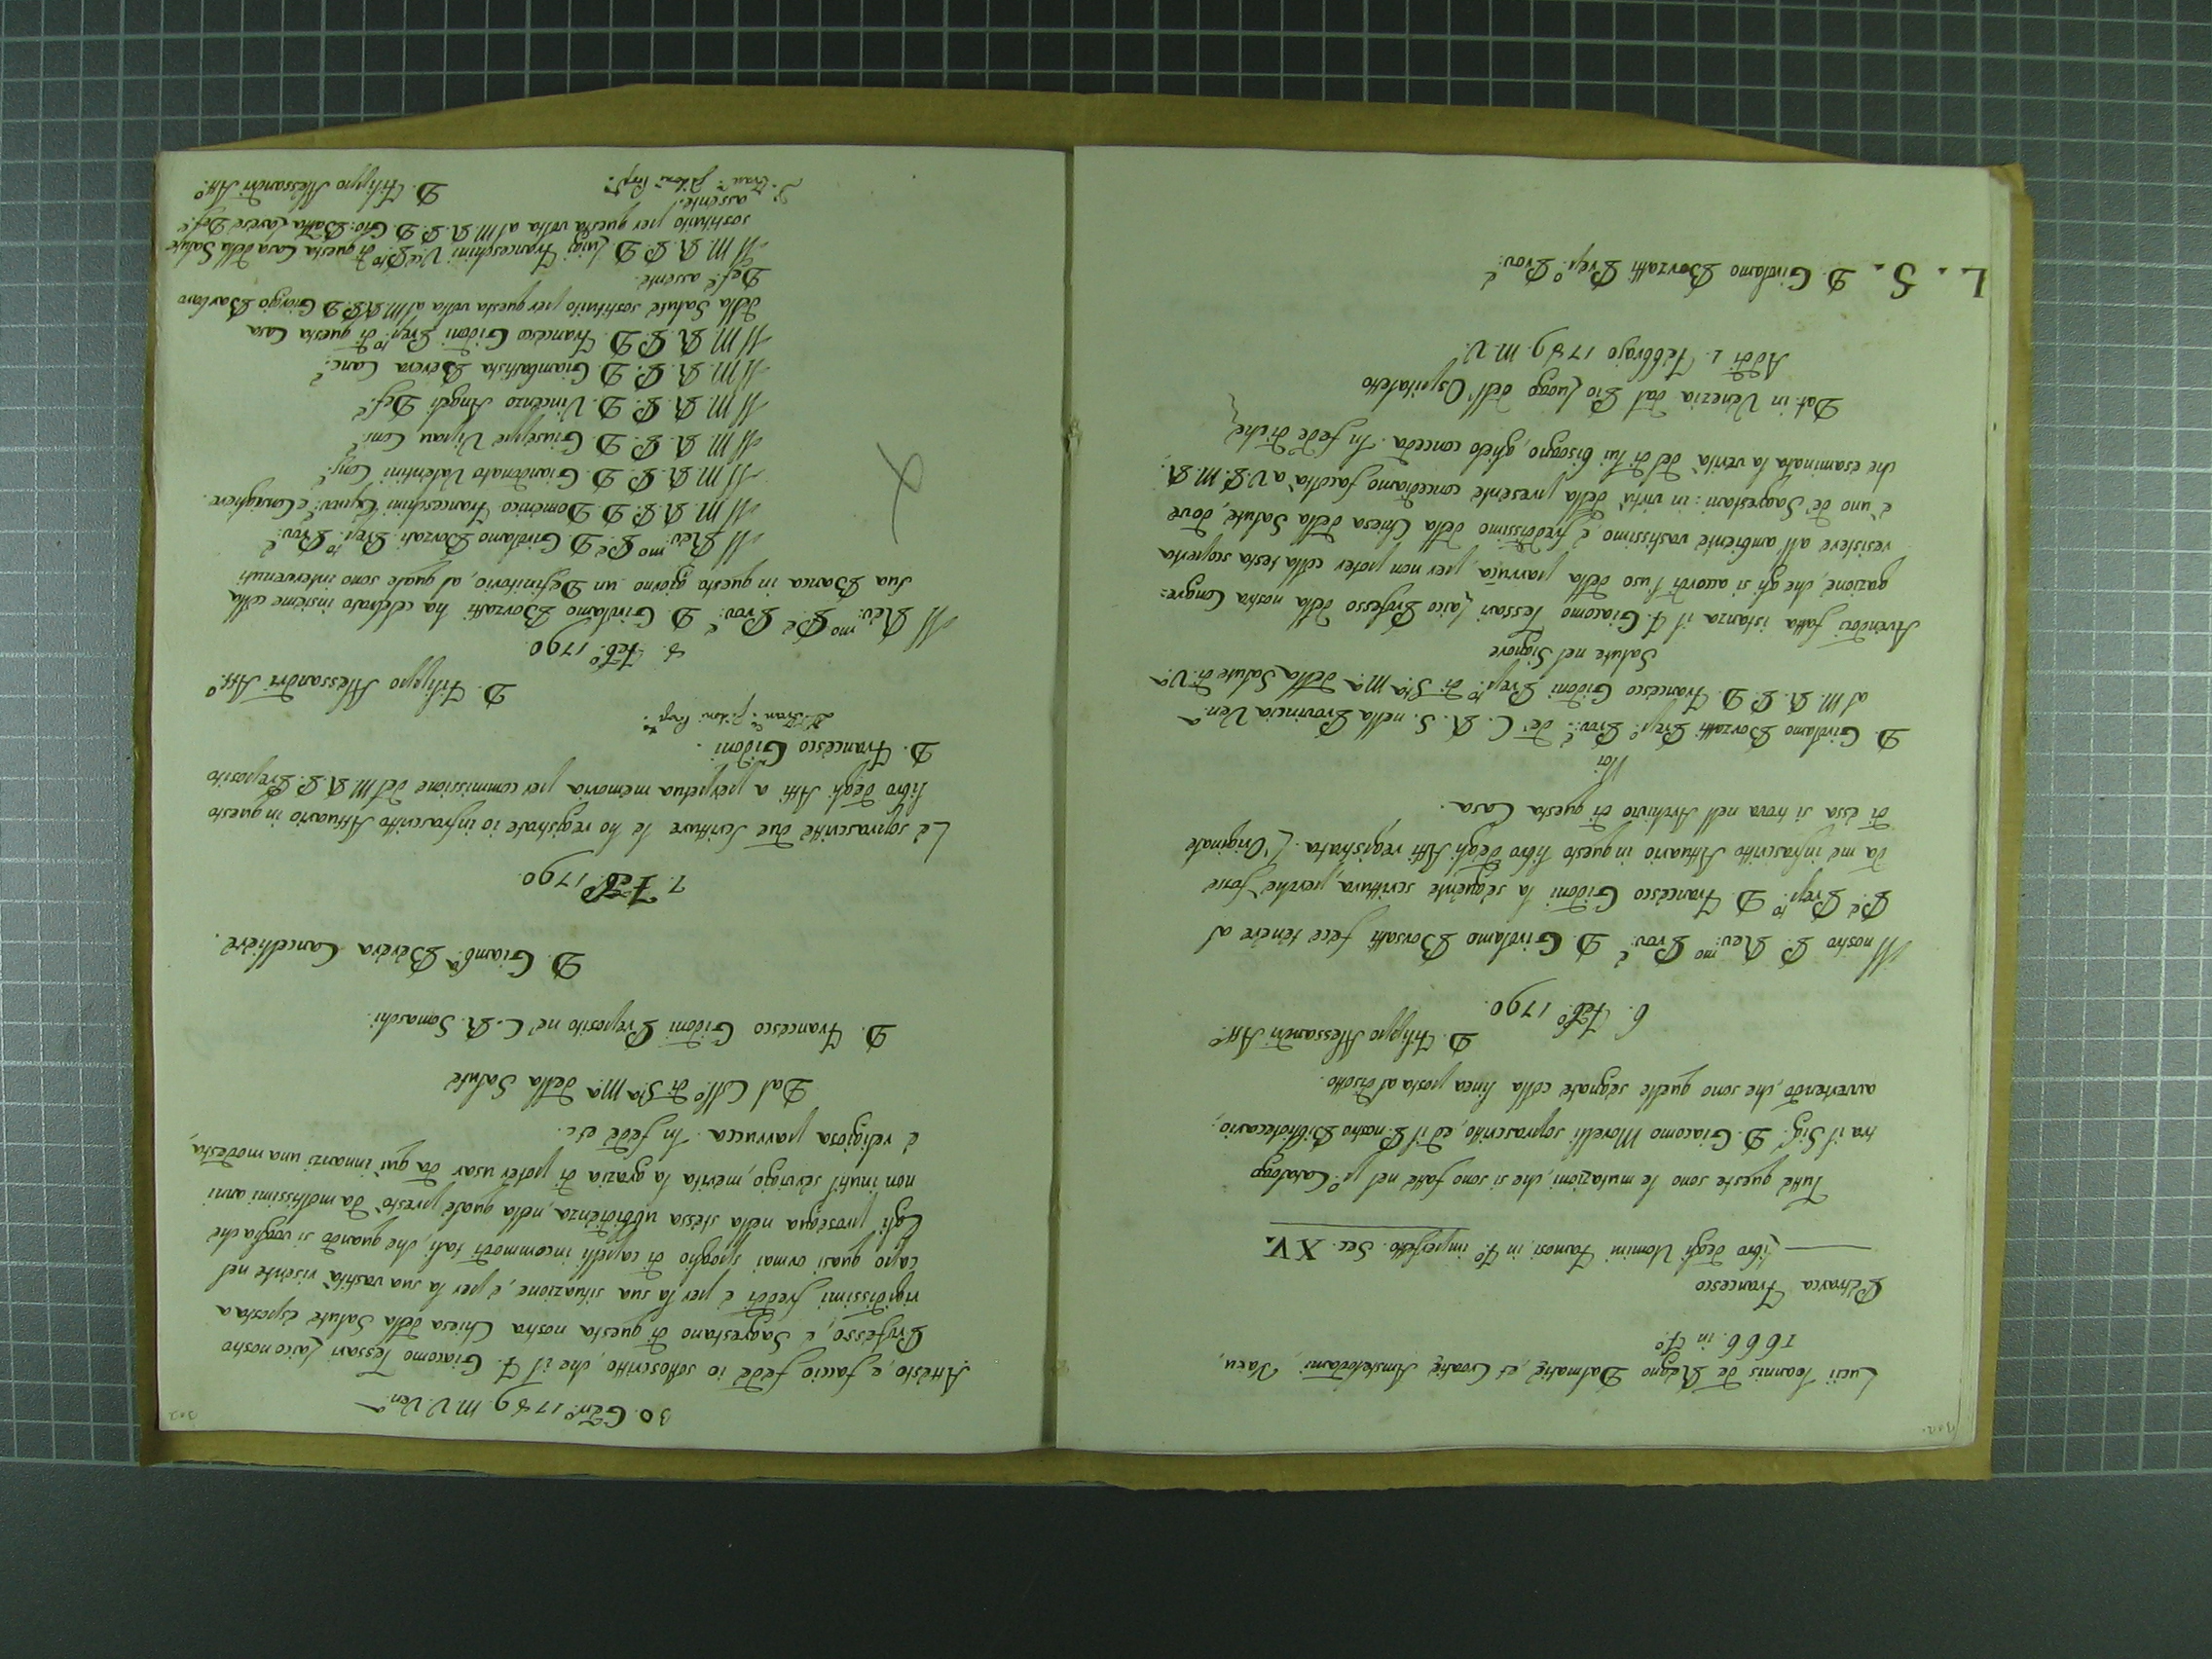 Lucii Joannis de Regno Dalmatiæ, et Croatiæ, Amstelodami,
1666 in 4.º
Petrarca Francesco
Libro degli Uomini Famosi, in 4º. imperfetto. Sec. XV.
Tutte queste sono le mutazioni, che si sono fatte nel pº. Catalogo
tra il Sigr. D. Giacomo Morelli soprascritto, ed il P. nostro Bibliotecario,
avvertendo, che sono quelle segnate colla linea posta al disotto.
D. Filippo Alessandri Att.º
6. Feb.º 1790.
Il nostro P. Rev:mo Prov:e D. Girolamo Borsatti fece tenere al
P.e Prep.to D. Francesco Gidoni la seguente scrittura, perchè fosse
da me infrascritto Attuario in questo libro degli Atti registrata. L'Originale
di essa si trova nell'Archivio di questa Casa.
Noi
D. Girolamo Borzatti Prep.º Prov:e de' C. R. S. nella Provincia Ven.a
al M. R. P. D. Francesco Gidoni Prep.to di S.ta M.a della Salute di V.a
Salute nel Signore
Avendoci fatta istanza il F. Giacomo Tessari Laico Professo della nostra Congre=
gazione, che gli si accordi l'uso della parruca, per non poter colla testa scoperta
resistere all'ambiente vastissimo, e freddissimo della Chiesa della Salute, dove
è uno de' Sagrestani: in virtù della presente concediamo facoltà a V. P. M. R.,
che esaminata la verità del di lui bisogno, glielo conceda. In fede di che
Dat. in Venezia dal Pio Luogo dell'Ospitaletto
Addì 1. Febbrajo 1789. M. V.
L. S. D. Girolamo Borzatti Prep.º Prov:e
302
30. Gen.º 1789. M. V. Ven.a
Attesto, e faccio fede io sottoscritto, che il F. Giacomo Tessari Laico nostro
Professo, e Sagrestano di questa nostra Chiesa della Salute esposta a
rigidissimi freddi e per la sua situazione, e per la sua vastità risente nel
capo quasi ormai spoglio di capelli incommodi tali, che quando si voglia che
Egli prosegua nella stessa ubbidienza, nella quale prestò da moltissimi anni
non inutil servigio, merita la grazia di poter usar da qui innanzi una modesta,
e religiosa parrucca. In fede etc.
Dal Coll.º di S.ta M.a della Salute
D. Francesco Gidoni Preposito ne' C. R. Somaschi.
D. Giamb.a Bevera Cancelliere.
7. Feb.º 1790.
Le soprascritte due Scritture le ho registrate io infrascritto Attuario in questo
libro degli Atti a perpetua memoria per commissione del M. R. P. Preposito
D. Francesco Gidoni.
D. Fran.co Gidoni Prep.to
D. Filippo Alessandri Att.º
8. Feb.º 1790.
Il Rev:mo P.e Prov:e D. Girolamo Borzatti ha celebrato insieme colla
sua Banca in questo giorno un Definitorio, al quale sono intervenuti
Il Rev:mo P.e D. Girolamo Borzati Prep.to Prov:e
Il M. R. P. D. Domenico Franceschini Exprov:e e Consigliere.
Il M. R. P. D. Giandonato Valentini Cons.e
Il M. R. P. D. Giuseppe Vipau Cons.e
Il M. R. P. D. Vincenzo Angeli Def.e
Il M. R. P. D. Giambattista Bevera Canc.e
Il M. R. P. D. Francesco Gidoni Prep.to di questa Casa
della Salute sostituito per questa volta al M. R. P. D. Giorgio Barbaro
Def.e assente.
Il M. R. P. D. Luigi Franceschini Vice Pr.to di questa Casa della Salute
sostituito per questa volta al M. R. P. D. Gio: Batta Rovere Def.e
assente.
D. Fran.co Gidoni Prep.to
D. Filippo Alessandri Att.º